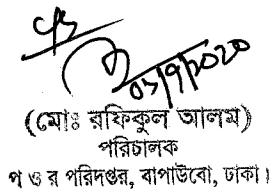 ০১/৭/২০২০
(মোঃ রফিকুল আলম)
পরিচালক
প ও র পরিদপ্তর, বাপাউবো, ঢাকা।